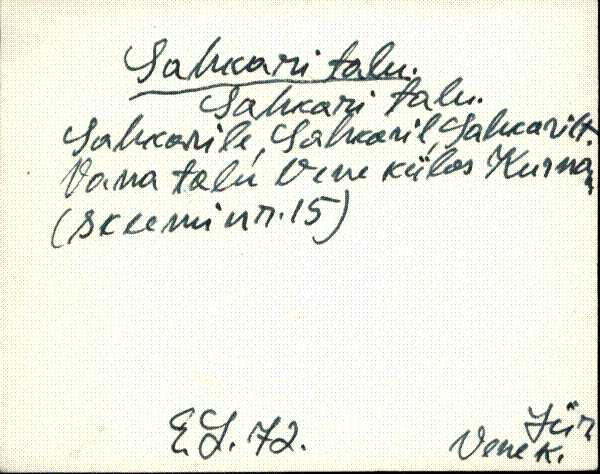 Sahkari talu.
Sahkari talu.
Sahkarile, Sahkaril, Sahkarilt.
Vana talu Vene külas Kurnas
(skeemi nr. 15)
E S. 72.
Jür
Vene k.